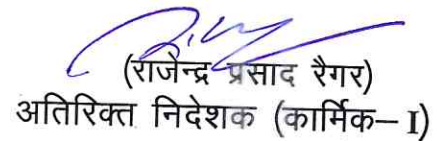 (राजेन्द्र प्रसाद रैगर)
अतिरिक्त निदेशक (कार्मिक– I)